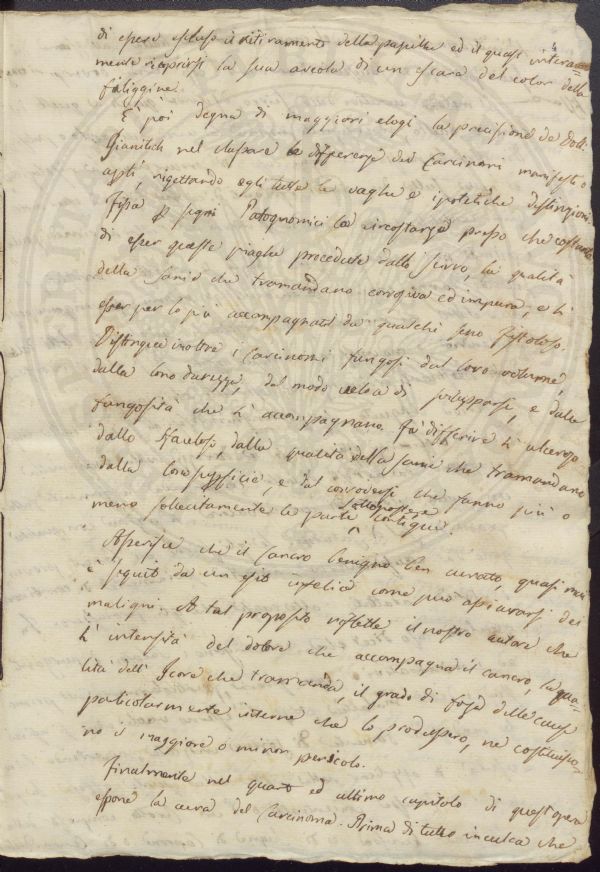 di essere escluso il ritiramento della papilla ed il quasi intera=
mente ricoprirsi la sua areola di un escara del color della
filiggine.
E' poi degna di maggiori elogi la precisione del Dott.
Gianilich nel classare le differenze dei Carcinomi manifesti o
aperti, rigettando egli tutte le vaghe e ipotetiche destinzioni.
Fissa p segni Patognomici la circostanza presso che costante
di esser queste piaghe procedute dallo scirro, la qualità
della sanie che tramandano corrosiva ed impura, e li
esser per lo più accompagnate da qualche seno fistoloso.
Distingue inoltre i Carcinomi fungosi dal loro volume,
dalla loro durezza, dal modo veloce di svilupparsi, e dalle
fungosità che li accompagnano. Fà differire li ulcerosi
dallo sfacelo, dalla qualità della sanie che tramandano
dalla loro superficie, e dal corrodersi che fanno più o
meno sollecitamente le parti sottoposte e contigue.
Asserisce che il Cancro benigno ben curato, quasi mai
è seguito da un esito infelice come può assicurarsi dei
maligni. A tal proposito riflette il nostro autore che
l' intensità del dolore che accompagna il cancro, la qua=
lità dell' Icore che tramanda, il grado di forza delle cause
particolarmente interne che lo produssero, ne costituisco=
no il maggiore o minor pericolo.
Finalmente nel quarto ed ultimo capitolo di quest'opera
espone la cura del Carcinoma. Prima di tutto inculca che